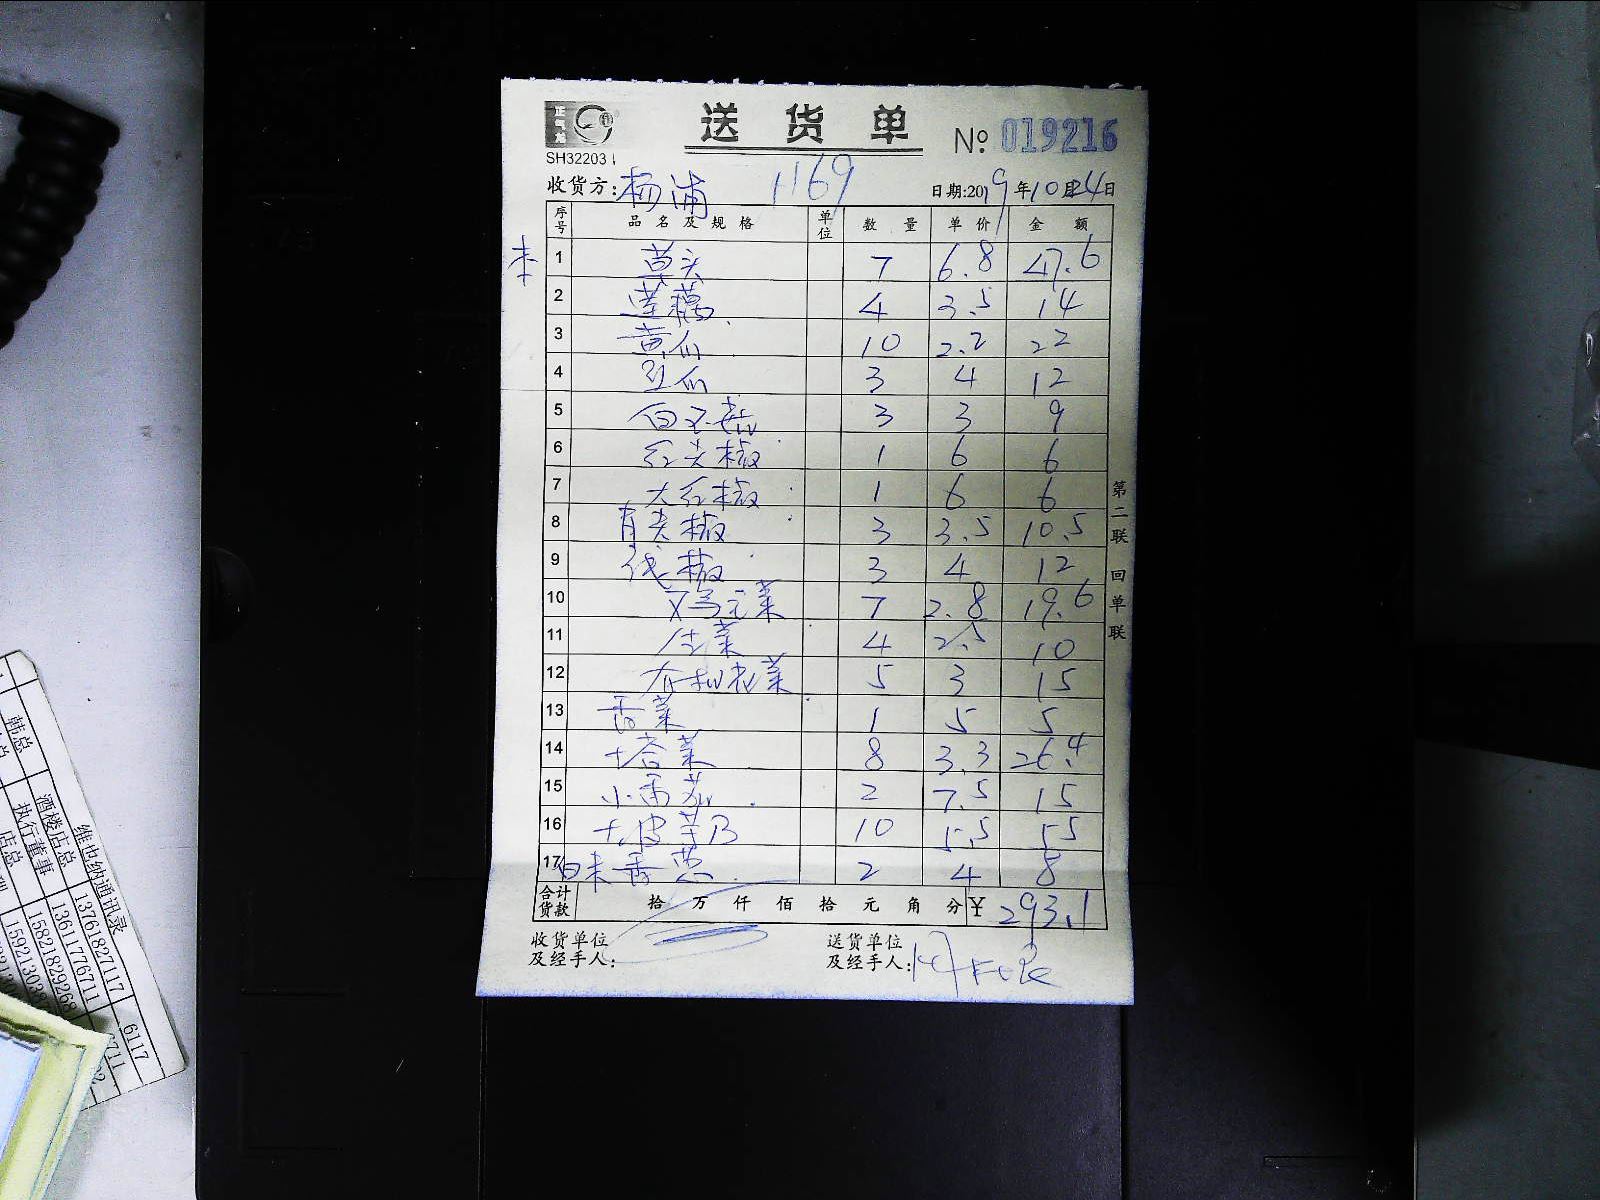 送货单
№ 019216
SH32203
收货方: 杨浦 1169 日期:2019年10月24日
序号 品名及规格 单位 数量 单价 金额
1 草头 7 6.8 47.6
2 莲藕 4 3.5 14
3 黄瓜 10 2.2 22
4 3 4 12
5 白玉菇 3 3 9
6 红尖椒 1 6 6
7 大红椒 1 6 6
8 青尖椒 3 3.5 10.5
9 线椒 3 4 12
10 7 2.8 19.6
11 生菜 4 2.5 10
12 5 3 15
13 香菜 1 5 5
14 塔菜 8 3.3 26.4
15 2 7.5 15
16 10 5.5 55
17 2 4 8
合计货款 拾 万 仟 佰 拾 元 角 分 ¥ 293.1
收货单位及经手人: 送货单位及经手人:
第二联 回单联
韩总
酒楼店总
执行董事
维也纳通讯录
13761827117 6117
13611776711 6711
15821829268